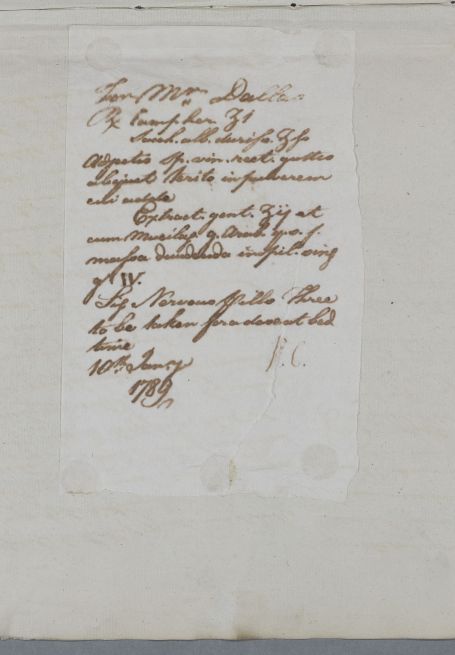 For Mrs Dallas
Rx Camphor ʒi
Sach. alb. duriss. ʒss
Adjectis sp. vin. rect. guttis
aliquot terito in pulverem
cui adde
Extract. gent. ʒij et
cum Mucilag. g. Arab. q. s. f.
massa dividenda in pil. sing
gr IV.
Sig Nervous Pills Three
to be taken for a dose at bed
time
10th Jany
1789